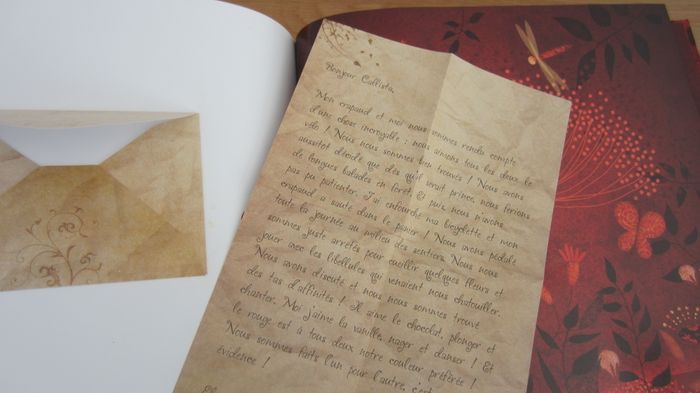 Bonjour Callista,
Mon crapaud et moi nous sommes rendu compte
d'une chose incroyable : nous aimons tous les deux le
vélo ! Nous nous sommes bien trouvés ! Nous avons
aussitôt décidé que dès qu'il serait prince, nous ferions
de longues balades en forêt. Et puis, nous n'avons
pas pu patienter. J'ai enfourché ma bicyclette et mon
crapaud a sauté dans le panier ! Nous avons pédalé
toute la journée au milieu des sentiers. Nous nous
sommes juste arrêtés pour cueillir quelques fleurs et
jouer avec les libellules qui venaient nous chatouiller.
Nous avons discuté et nous nous sommes trouvé
des tas d'affinités ! Il aime le chocolat, plonger et
chanter. Moi j'aime la vanille, nager et danser ! Et
le rouge est à tous deux notre couleur préférée !
Nous sommes faits l'un pour l'autre, c'est
évidence !